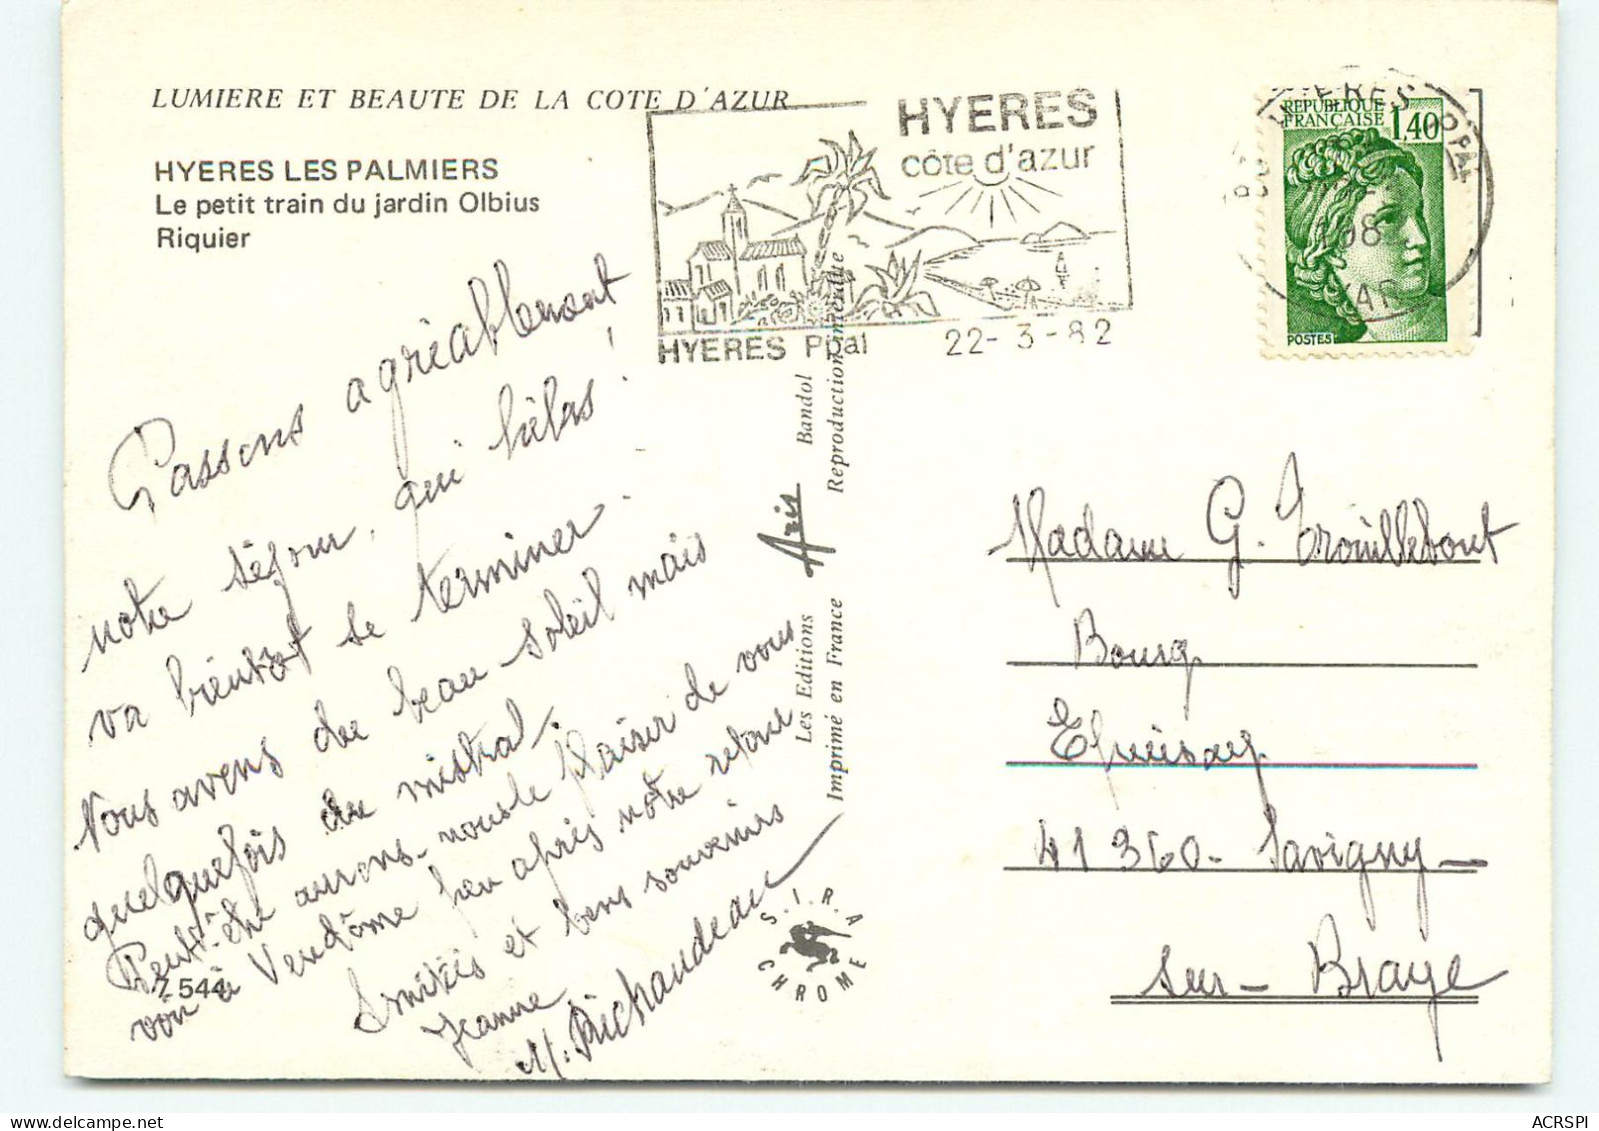 LUMIERE ET BEAUTE DE LA COTE D'AZUR
HYERES LES PALMIERS
Le petit train du jardin Olbius
Riquier
HYERES
côte d'azur
HYERES Ppal
22-3-82
REPUBLIQUE
FRANÇAISE
1,40
POSTES
HYERES PPAL
VAR
Passons agréablement
notre séjour, qui hélas !
va bientôt se terminer.
Nous avons du beau soleil mais
quelquefois du mistral.
Peut-être aurons-nous le plaisir de vous
voir à Vendôme peu après notre retour
Amitiés et bons souvenirs
Jeanne
M. Michaudeau
7.544
Les Editions Aris Bandol
Imprimé en France Reproduction interdite
S.I.R.A
CHROME
Madame G. Trouillebout
Bourg
Epuisay
41360 - Savigny -
sur - Braye
ACRSPI